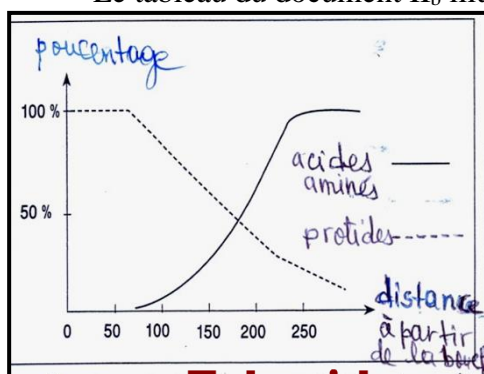 Le tableau du document II
poucentage
100 %
50 %
acides
aminés
protides
0 50 100 150 200 250
distance
à partir
de la